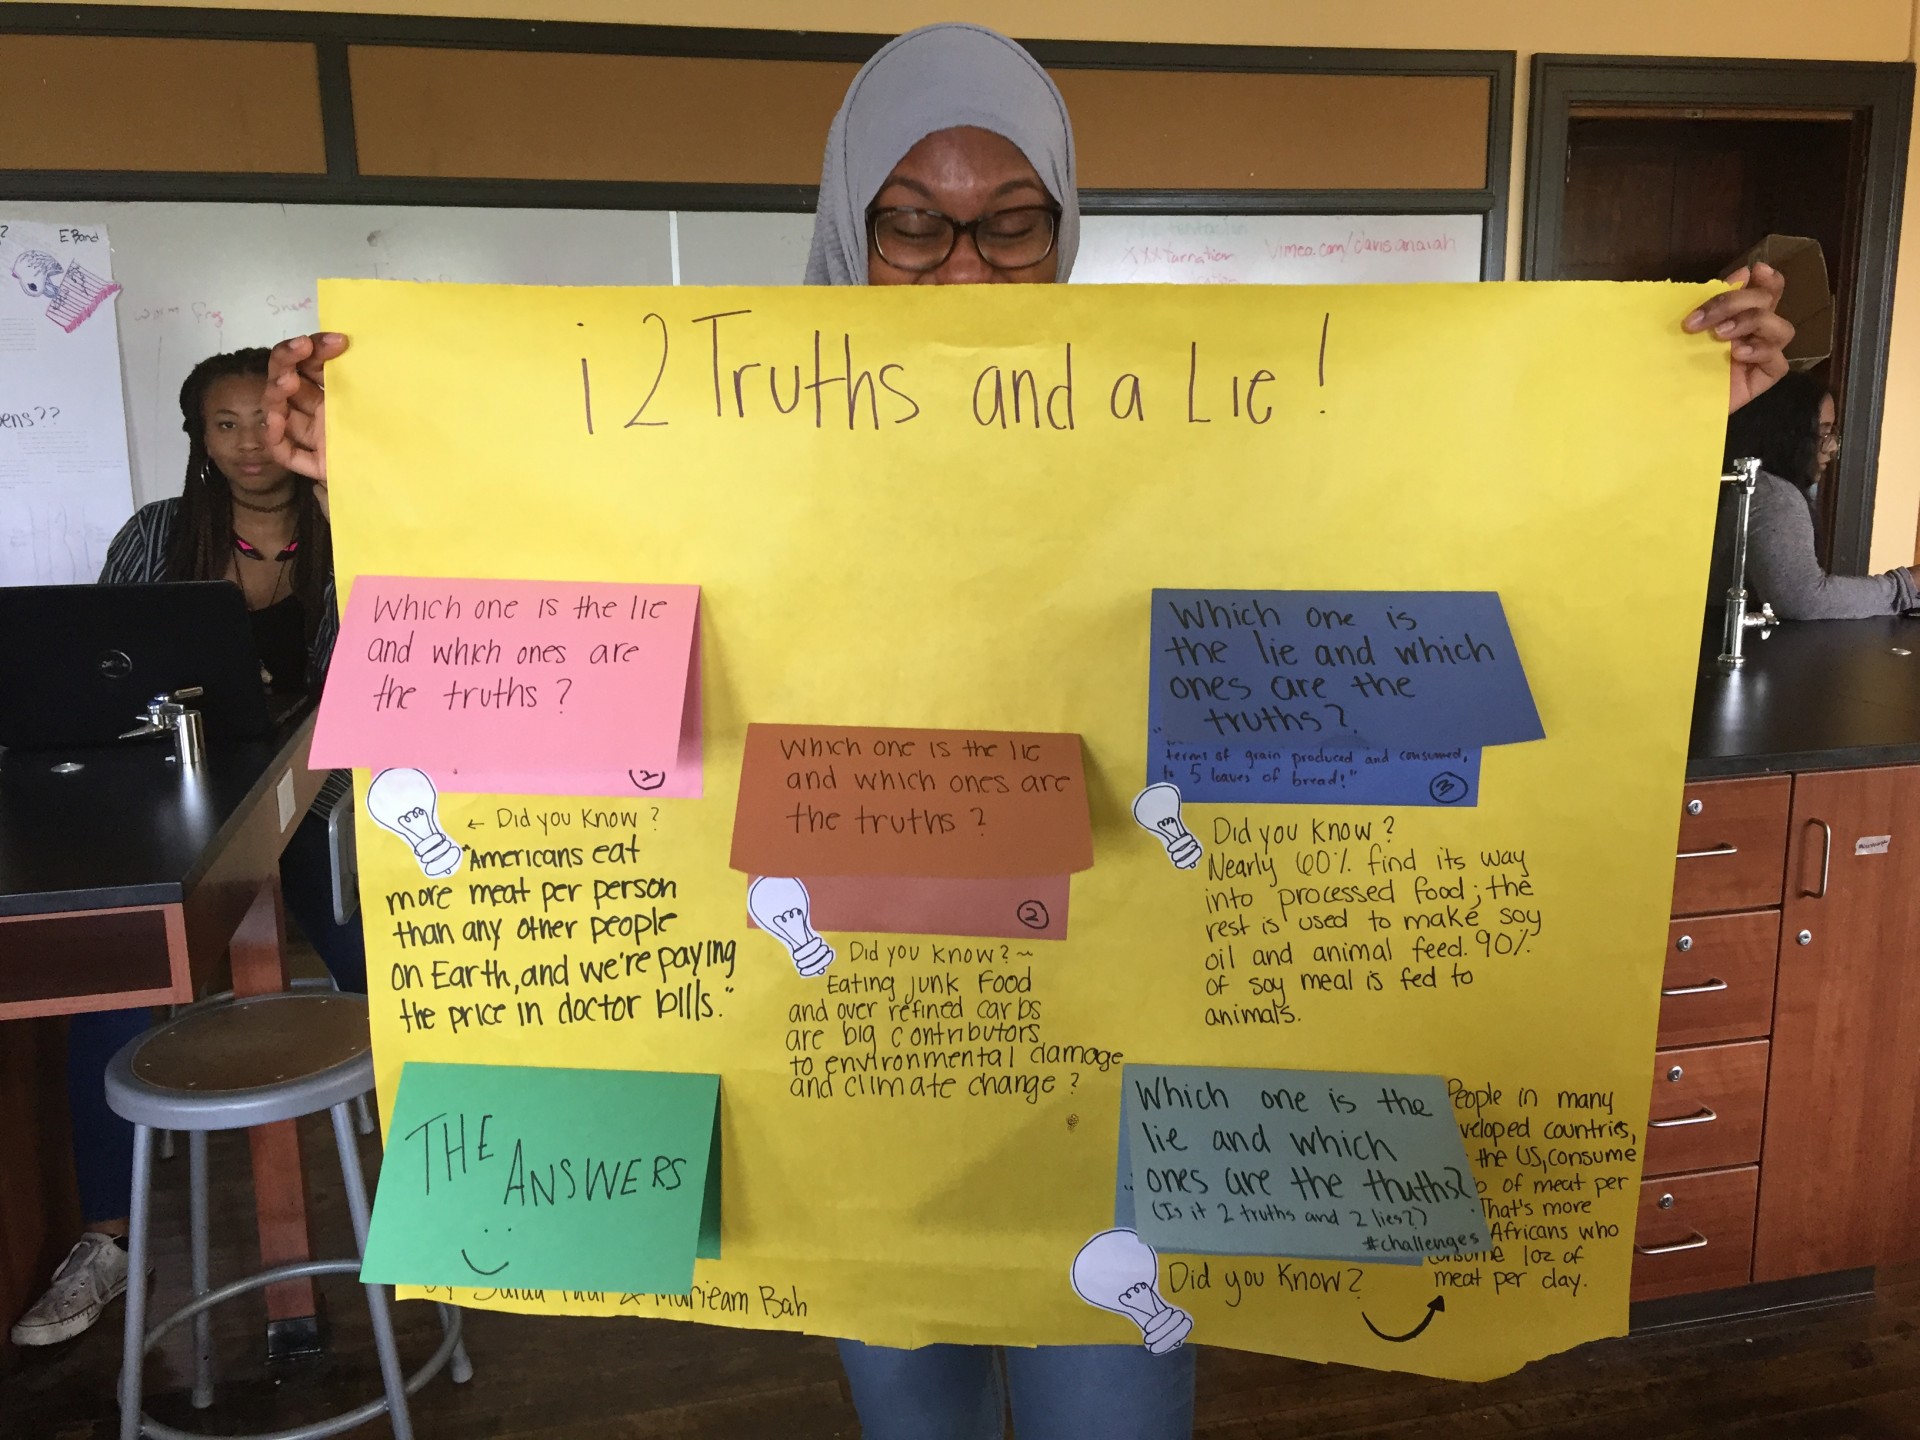 ¡ 2 Truths and a Lie!
Which one is the lie
and which ones are
the truths?
2
← Did you know?
"Americans eat
more meat per person
than any other people
on Earth, and we're paying
the price in doctor bills."
Which one is the lie
and which ones are
the truths?
2
Did you know?~
Eating junk Food
and over refined carbs
are big contributors
to environmental damage
and climate change?
Which one is
the lie and which
ones are the
truths?
terms of grain produced and consumed,
5 loaves of bread!"
3
Did you know?
Nearly 60% find its way
into processed food; the
rest is used to make soy
oil and animal feed. 90%
of soy meal is fed to
animals.
THE
ANSWERS
& Marieam Bah
Which one is the
lie and which
ones are the thuths?
(Is it 2 truths and 2 lies??)
#challenges
Did you Know?
People in many
countries,
the US, consume
of meat per
That's more
Africans who
1oz of
meat per day.
E Band
worm Frog
XXXtarnation
vimeo.com/
DELL